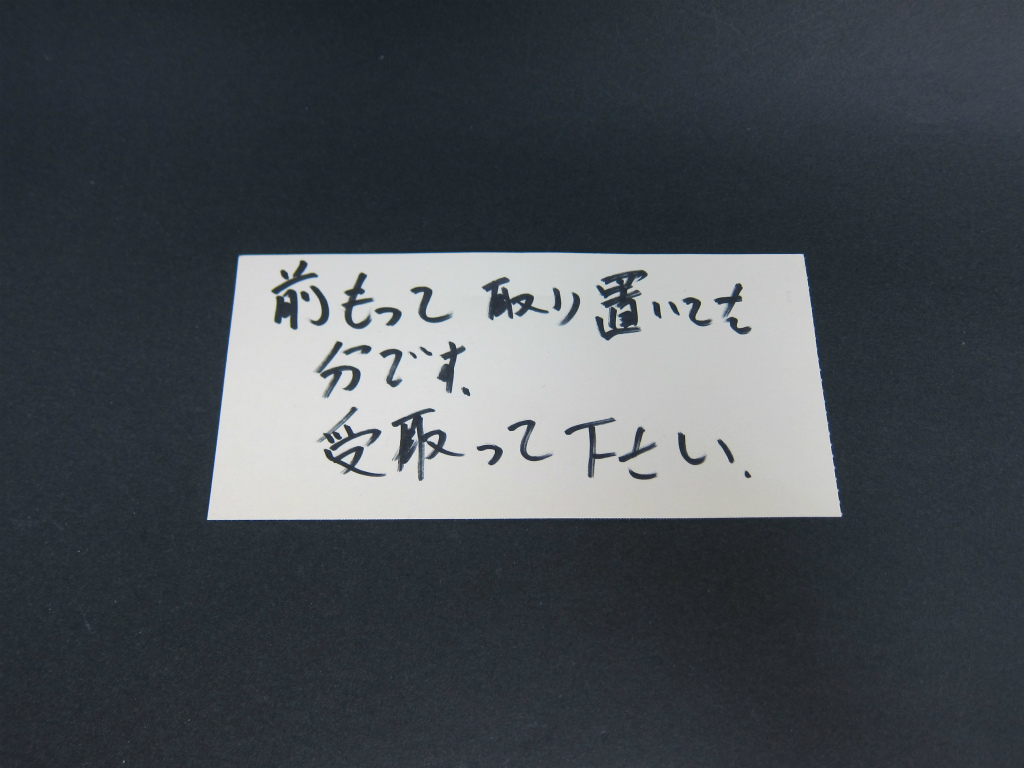 前もって 取り置いてた
分です.
受取って下さい.